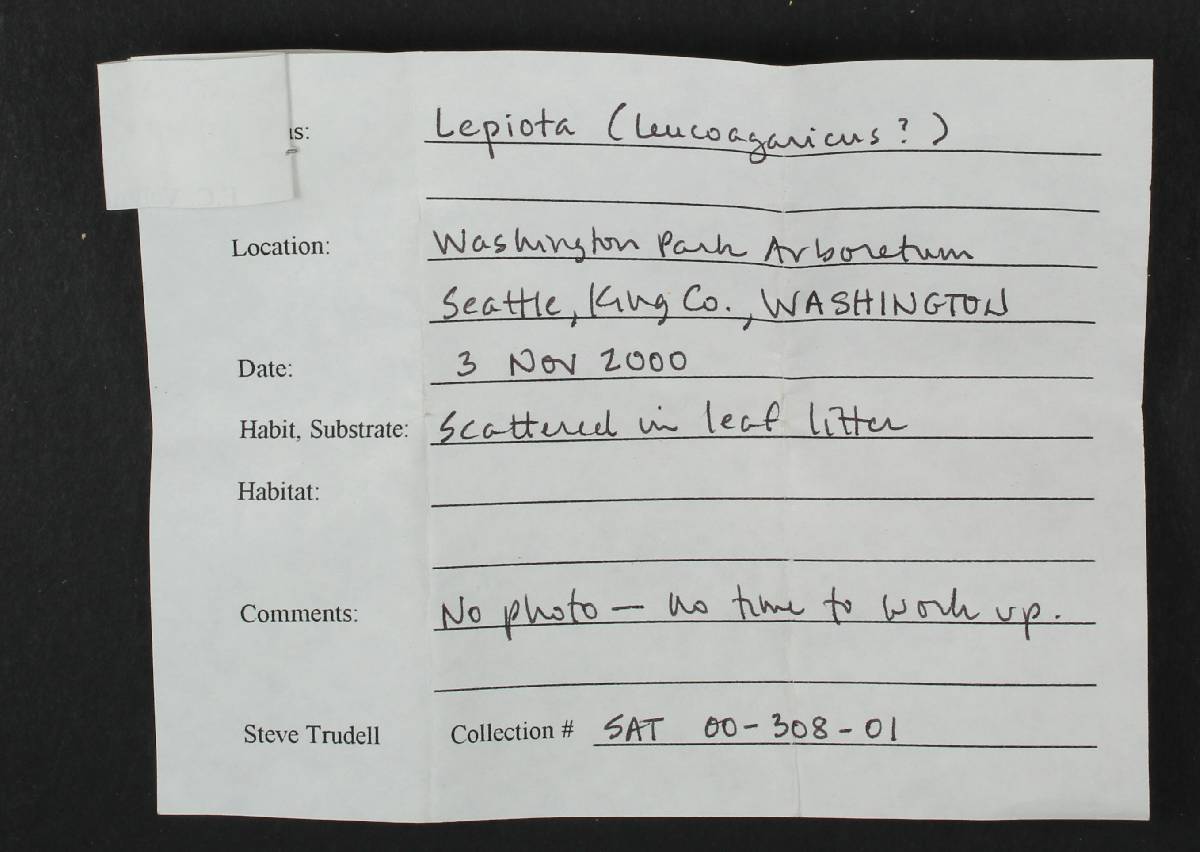 is: Lepiota (Leucoagaricus?)
Location: Washington Park Arboretum
Seattle, King Co., WASHINGTON
Date: 3 Nov 2000
Habit, Substrate: Scattered in leaf litter
Habitat:
Comments: No photo — no time to work up.
Steve Trudell Collection # SAT 00-308-01